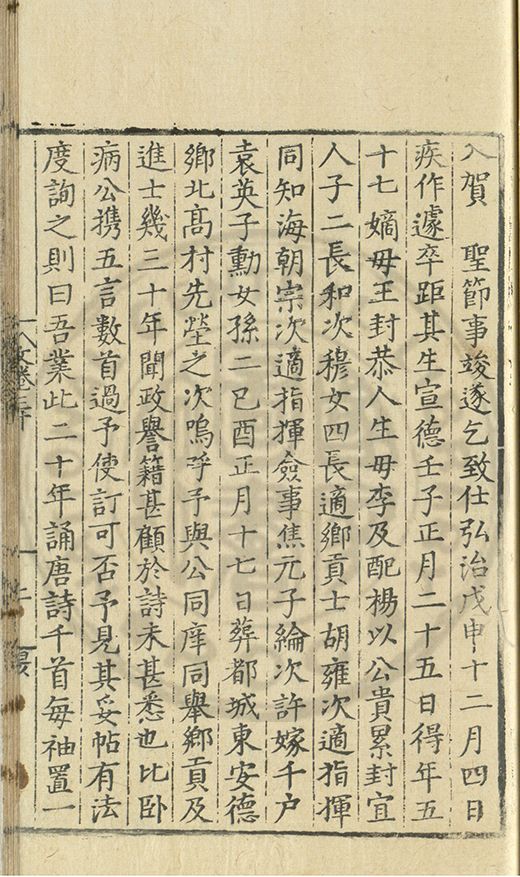 入賀　聖節事竣遂乞致仕弘治戊申十二月四日
疾作遽卒距其生宣德壬子正月二十五日得年五
十七嫡毋王封恭人生毋李及配楊以公貴累封宜
人子二長和次穆女四長適鄉貢士胡雍次適指揮
同知海朝宗次適指揮僉事焦元子綸次許嫁千户
袁英子勳女孫二巳酉正月十七日葬都城東安德
鄉北髙村先塋之次嗚呼予與公同庠同舉鄉貢及
進士幾三十年聞政譽籍甚顧於詩未甚悉也比卧
病公携五言數首過予使訂可否予見其妥帖有法
度詢之則曰吾業此二十年誦唐詩千首每袖置一
文卷三十